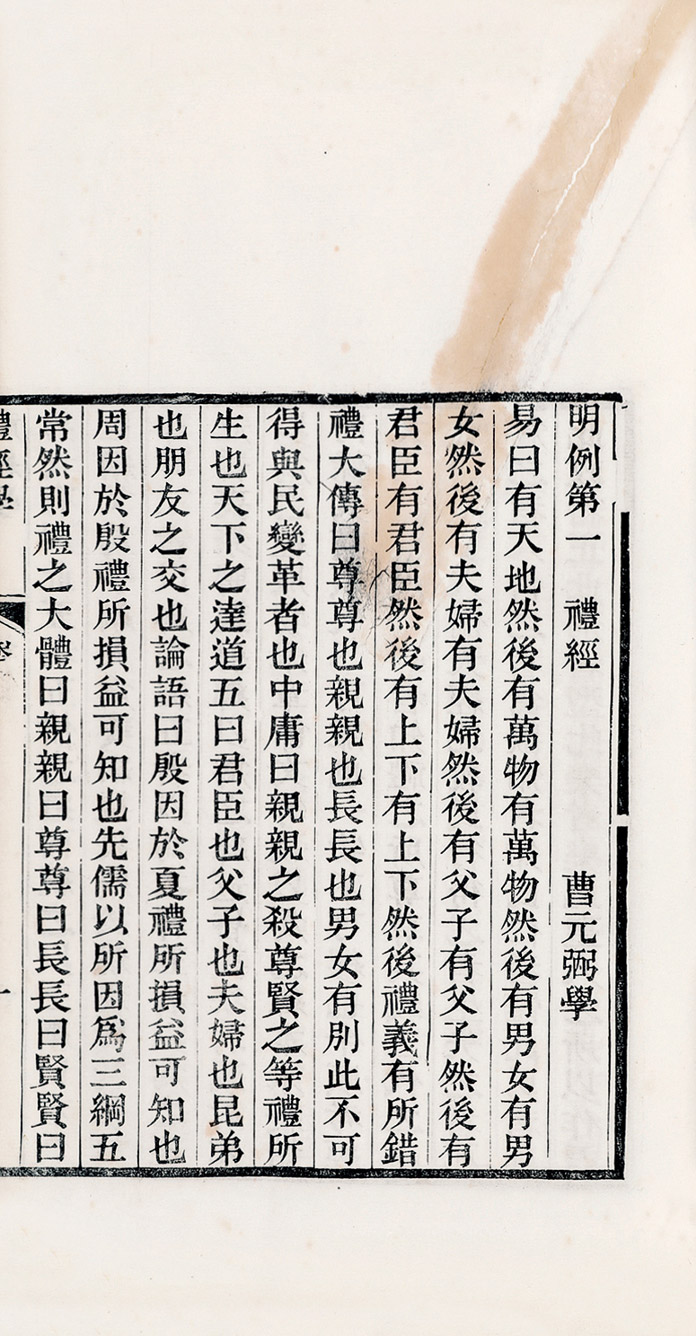 明例第一　禮經　曹元弼學
易曰有天地然後有萬物有萬物然後有男女有男
女然後有夫婦有夫婦然後有父子有父子然後有
君臣有君臣然後有上下有上下然後禮義有所錯
禮大傳曰尊尊也親親也長長也男女有別此不可
得與民變革者也中庸曰親親之殺尊賢之等禮所
生也天下之達道五曰君臣也父子也夫婦也昆弟
也朋友之交也論語曰殷因於夏禮所損益可知也
周因於殷禮所損益可知也先儒以所因爲三綱五
常然則禮之大體曰親親曰尊尊曰長長曰賢賢曰
禮經學